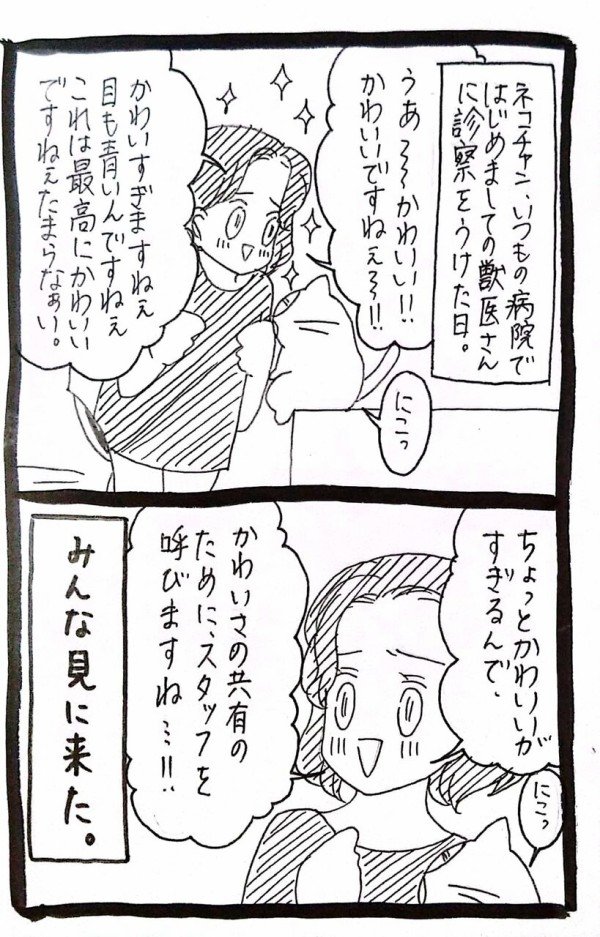 ネコチャン、いつもの病院で
はじめましての獣医さん
に診察をうけた日。
うあ〜〜かわいい!!
かわいいですねぇ〜〜!!
かわいすぎますねぇ
目も青いんですねぇ
これは最高にかわいい
ですねぇたまらなぁい。
にこっ
ちょっとかわいいが
すぎるんで、
にこっ
かわいさの共有の
ために、スタッフを
呼びますね…!!
みんな見に来た。